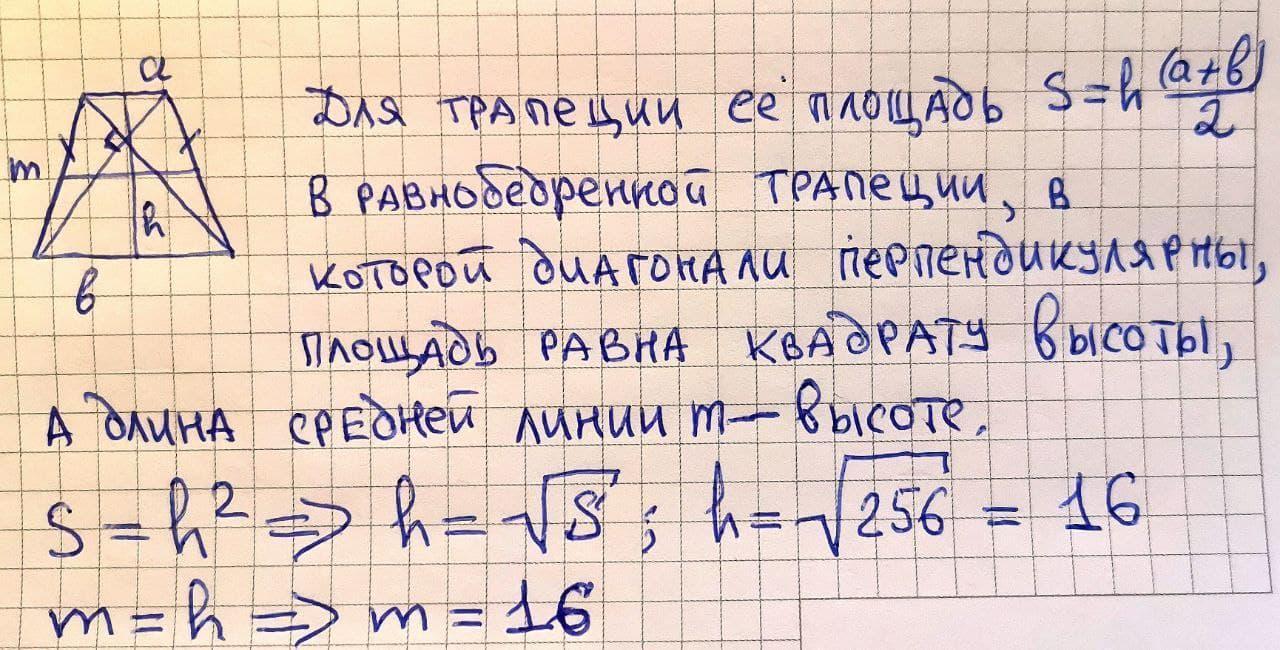 a
Для трапеции её площадь S=h (a+b)/2
m
h
В равнобедренной трапеции, в
которой диагонали перпендикулярны,
b
площадь равна квадрату высоты,
а длина средней линии m — высоте.
S = h² ⇒ h = √S ; h = √256 = 16
m = h ⇒ m = 16